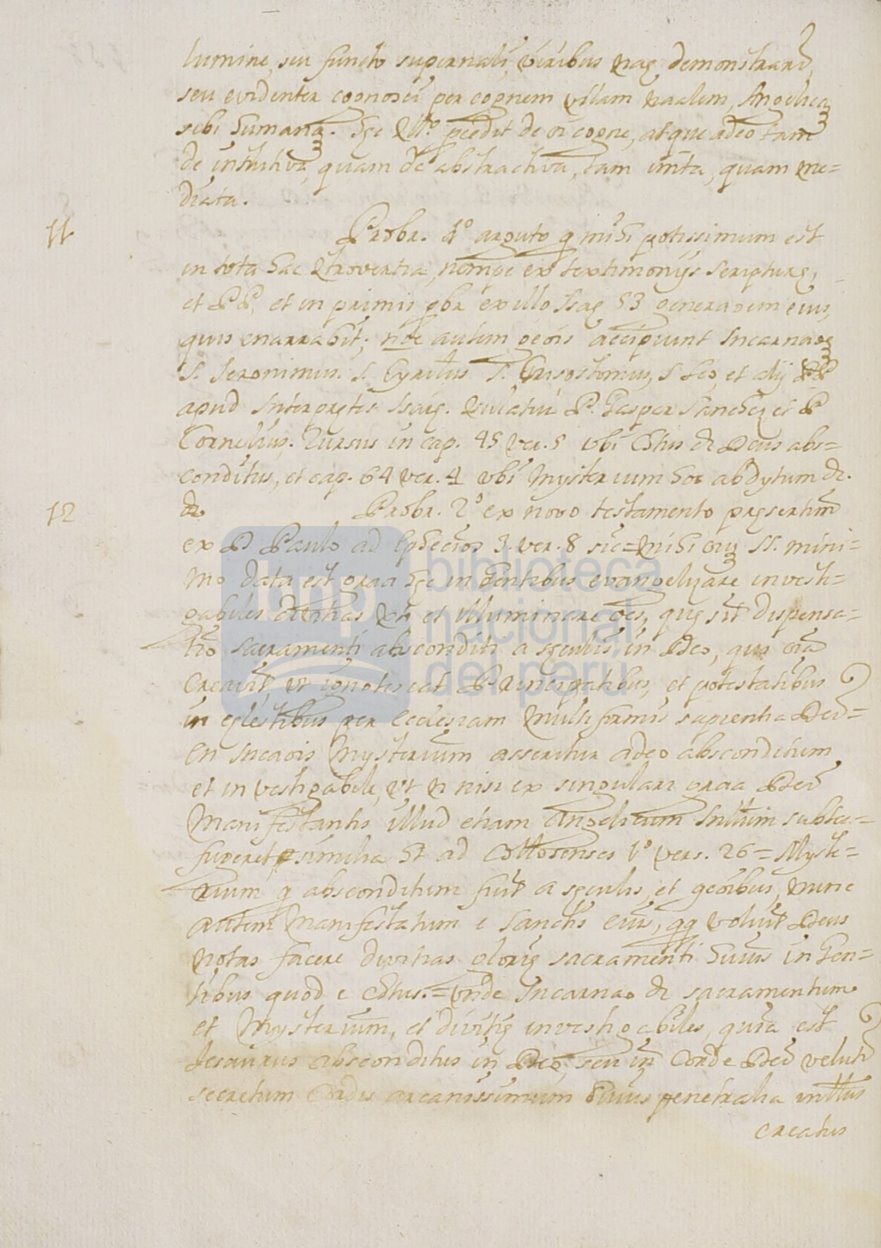 lumine, seu functo supernali, viribus nae demonstrare,
seu evidenter cognosci per cognem ullam naalem, Angelica
sibi humana. Hęc pcedit de oi cogne, atque adeo tam
de intuitiva, quam de abstractiva, tam imta, quam me=
diata.
11 Probr. 1º arguto q mihi potissimum est
in tota hac qtrovertia, nempe ex textimonijs scripturę,
et PP, et in primis pbr ex illo Isaę 53 generaoem eius
quis enarrabit; hoc autem geois accipiunt Incarnaoę
S. Jeronimus. S. Cyrilus S. Crisostomus, S Leo, et alij PP
apud Interpretes Isaię. P. Gaspar Sanchez et P
Cornelius. Rursus in cap. 45 ver. 5 ubi Cstus dr Deus abs=
conditus, et cap. 64 ver. 4 ubi mysterium hoc abdytum dr.
12 Probr. 2º ex novo testamento pręsertim
ex D Paulo ad Ephecios 3. ver. 8 sic= mihi oiu SS. mini=
mo data est graa hęc in Gentibus evangelizare investi=
gabiles divitias Xti et illuminare oes, quę sit dispensa=
tio sacramenti absconditi a sęculis in Deo, qui oia
creavit ut ignotescat Principatibus, et potestatibus
in cęlestibus per Ecclesiam multiformis sapientia Dei=
En Incaois Mysterium asseritur adeo absconditum
et investigabile, ut n nisi ex singulari graa Dei
Manifestantis illud etiam Angelicum
superet similia ht ad Collosenses 1º vers. 26= Myste=
rium q absconditum fuit a sęculis, et geoibus, nunc
autem manifestatum e sanctis eius, qq voluit Deus
notas facere divitias glorię sacramenti huius in Gen=
tibus quod e Cstus.= Unde Incarnao dr sacramentum
et Mysterium, et divitię investigabiles, quia est
Tesaurus absconditus in Deo, seu in Corde Dei veluti
secretum Cordis arcanissimum cuius penetralia
creatus